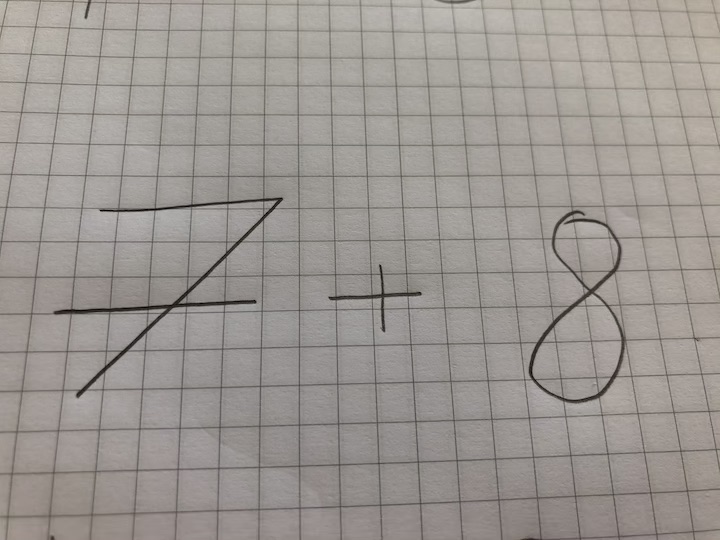 7 + 8